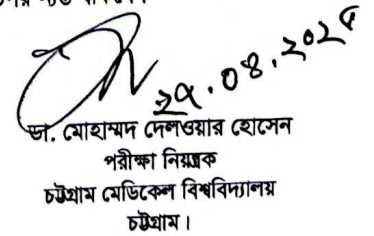 ২৭.০৪.২০২৫
ডা. মোহাম্মদ দেলওয়ার হোসেন
পরীক্ষা নিয়ন্ত্রক
চট্টগ্রাম মেডিকেল বিশ্ববিদ্যালয়
চট্টগ্রাম।